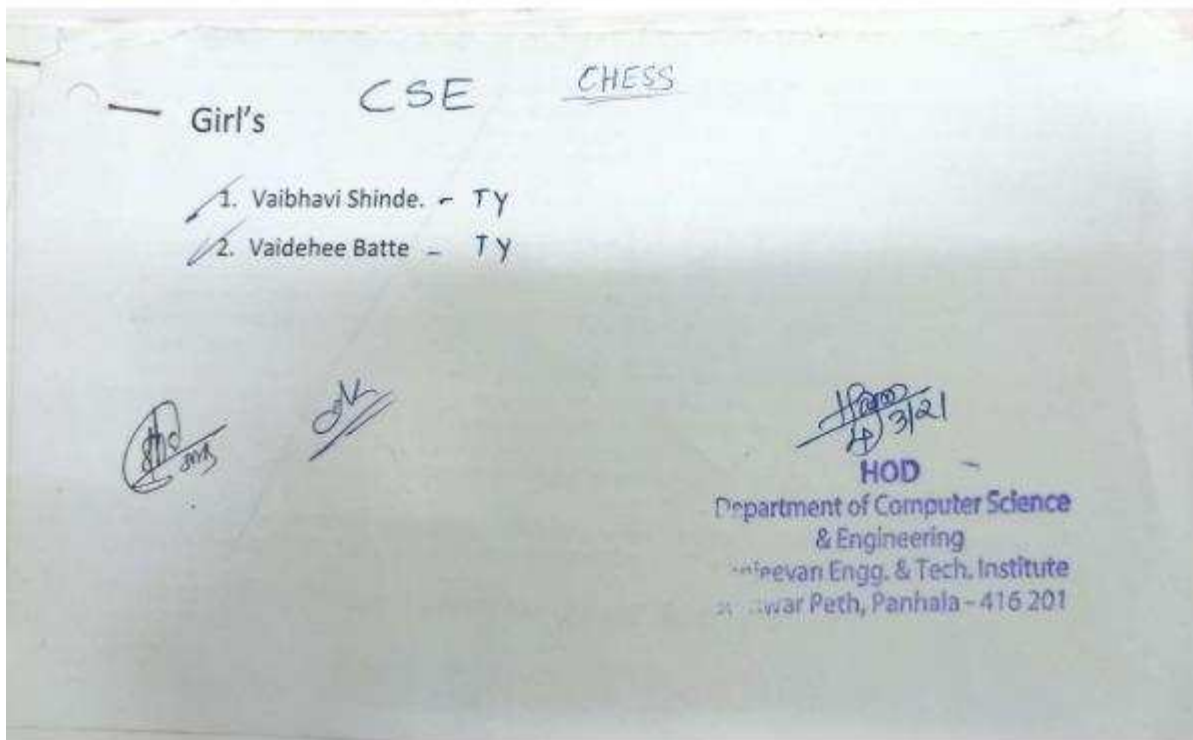 CSE CHESS
Girl's
1. Vaibhavi Shinde. - TY
2. Vaidehee Batte - TY
4/3/21
HOD
Department of Computer Science
& Engineering
Engg. & Tech. Institute
Peth, Panhala - 416 201